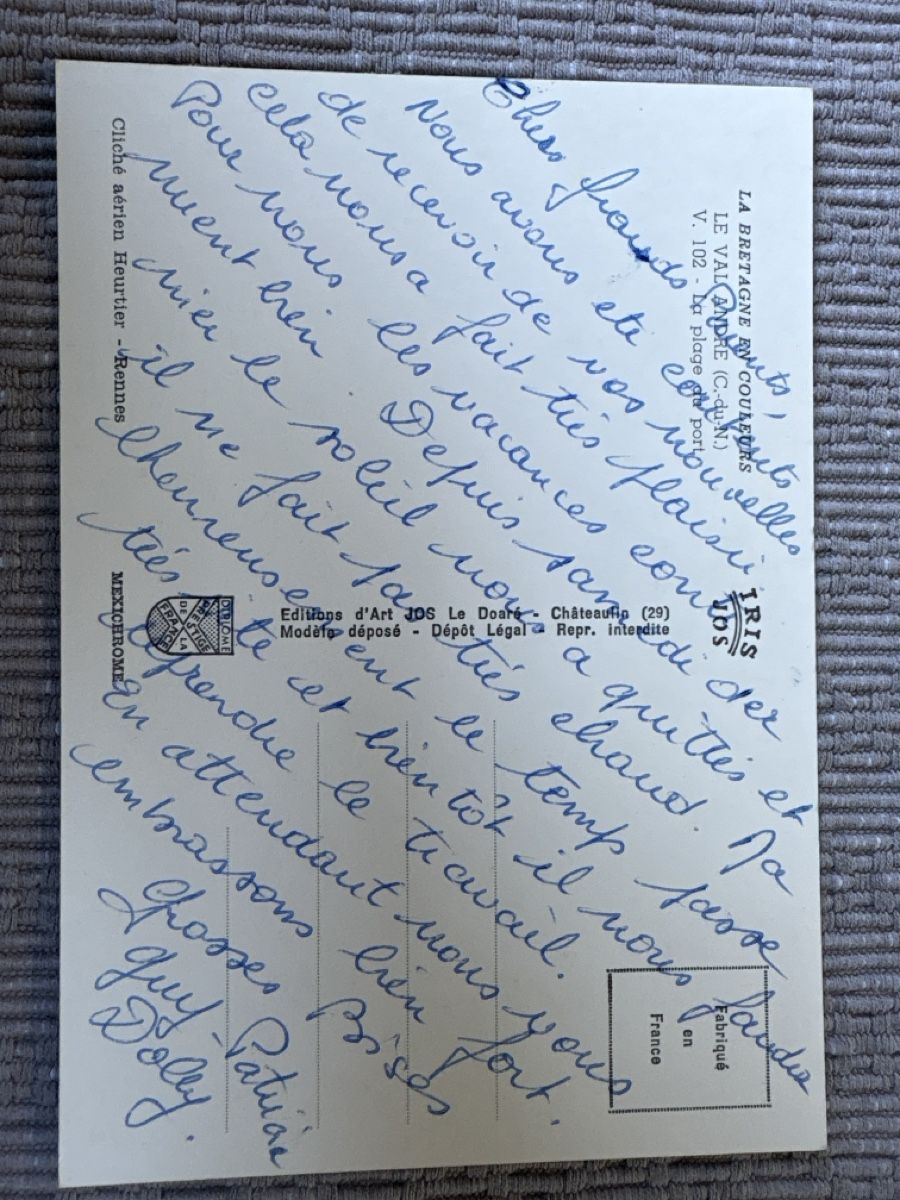 LA BRETAGNE EN COULEURS
LE VAL ANDRÉ (C.-du-N.)
V. 102 - La plage du port
Chers grands Parents,
Nous avons été contents
de recevoir de vos nouvelles
cela nous a fait très plaisir
Pour nous les vacances conti
nuent bien. Depuis samedi der
nier le soleil nous a quittés et
il ne fait pas très chaud. Ma
lheureusement le temps passe
très vite et bientôt il nous faudra
reprendre le travail.
En attendant nous vous
embrassons bien fort.
Grosses Bises
Guy - Patricia
Dolly.
IRIS
JOS
Editions d'Art JOS Le Doaré - Châteaulin (29)
Modèle déposé - Dépôt Légal - Repr. interdite
DIPLÔME
PRESTIGE
DE LA
FRANCE
Fabriqué
en
France
Cliché aérien Heurtier - Rennes
MEXICHROME